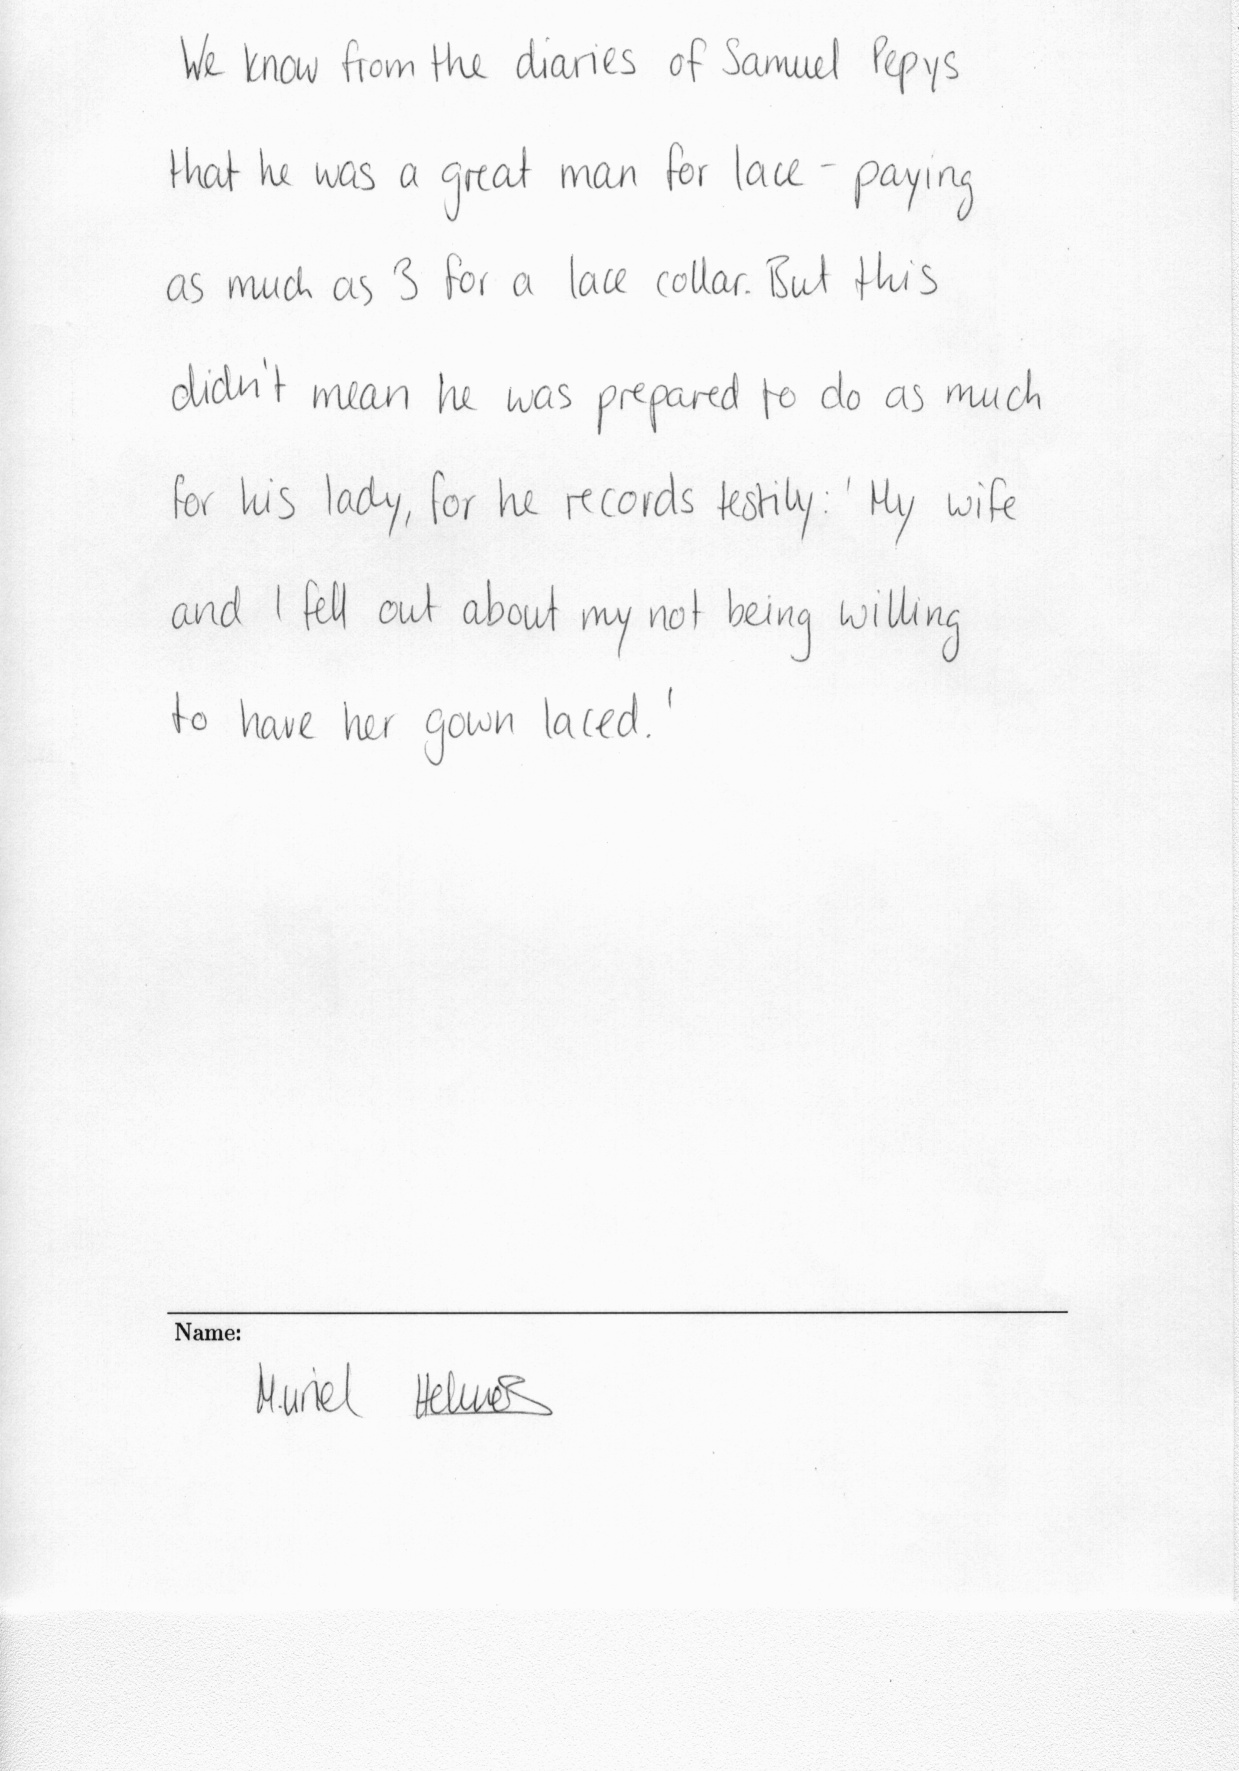 We know from the diaries of Samuel Pepys
that he was a great man for lace - paying
as much as 3 for a lace collar. But this
didn't mean he was prepared to do as much
for his lady, for he records testily: 'My wife
and I fell out about my not being willing
to have her gown laced.'
Name:
Muriel